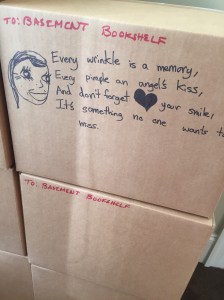 TO: BASEMENT BOOKSHELF
Every wrinkle is a memory,
Every pimple an angel's kiss,
And don't forget your smile,
It's something no one wants to
miss.
TO: BASEMENT BOOKSHELF
TO: BASEMENT BOOKSHELF